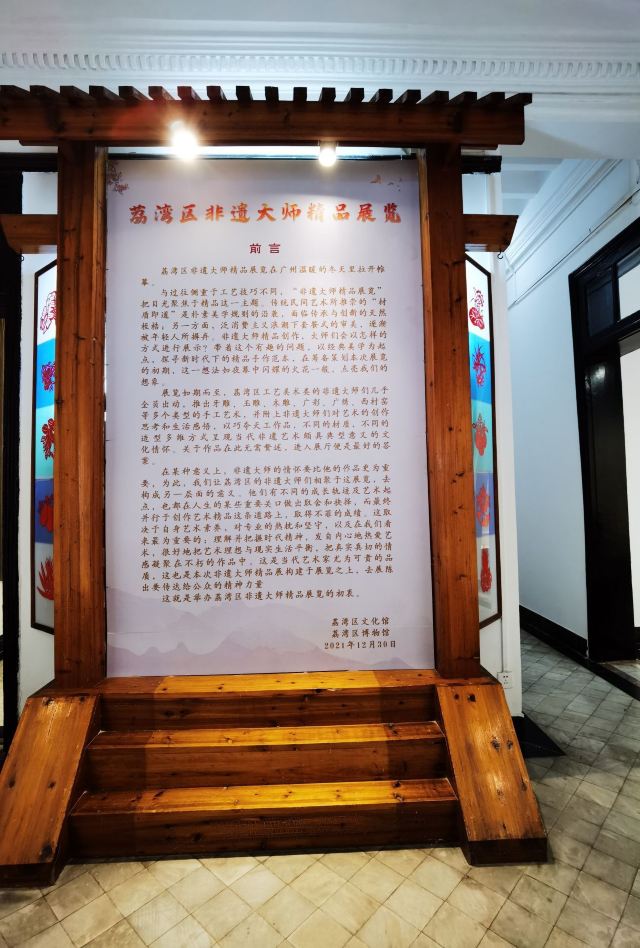 荔湾区非遗大师精品展览
前言
荔湾区非遗大师精品展览在广州温暖的冬天里拉开帷
幕。
与过往侧重于工艺技巧不同，“非遗大师精品展览”
把目光聚焦于精品这一主题。传统民间艺术所推崇的“材
质即道”是朴素美学规则的沿袭，面临传承与创新的天然
桎梏；另一方面，泛消费主义浪潮下套餐式的审美，逐渐
被年轻人所摒弃。非遗大师精品创作，大师们会以怎样的
方式进行展示？带着这个有趣的问题，以经典美学为起
点，探寻新时代下的精品手作范本，在筹备策划本次展览
的初期，这一想法如夜幕中闪耀的火花一般，点亮我们的
想象。
展览如期而至，荔湾区工艺美术类的非遗大师们几乎
全员出动，推出牙雕、玉雕、木雕、广彩、广绣、西村窑
等多个类型的手工艺术，并附上非遗大师们对艺术的创作
思考和生活感悟，以巧夺天工作品，不同的材质，不同的
造型多维方式呈现当代非遗艺术颇具典型意义的文
化情怀。关于作品在此无需赘述，进入展厅便是最好的答
案。
在某种意义上，非遗大师的情怀要比他的作品更为重
要，为此，我们让荔湾区的非遗大师们相聚于这展览，去
构成另一层面的意义。他们有不同的成长轨迹及艺术起
点，也都在人生的某些重要关口做出取舍和抉择，而最终
并行于创作艺术精品这条道路上，取得不菲的成绩。这取
决于自身艺术素养、对专业的热忱和坚守，以及在我们看
来最为重要的：理解并把握时代精神，发自内心地热爱艺
术，很好地把艺术理想与现实生活平衡，把真实真切的情
感凝聚在不朽的作品中。这是当代艺术家尤为可贵的品
质，这也是本次非遗大师精品展构建于展览之上，去展陈
出要传达给公众的精神力量
这就是举办荔湾区非遗大师精品展览的初衷。
荔湾区文化馆
荔湾区博物馆
2021年12月30日